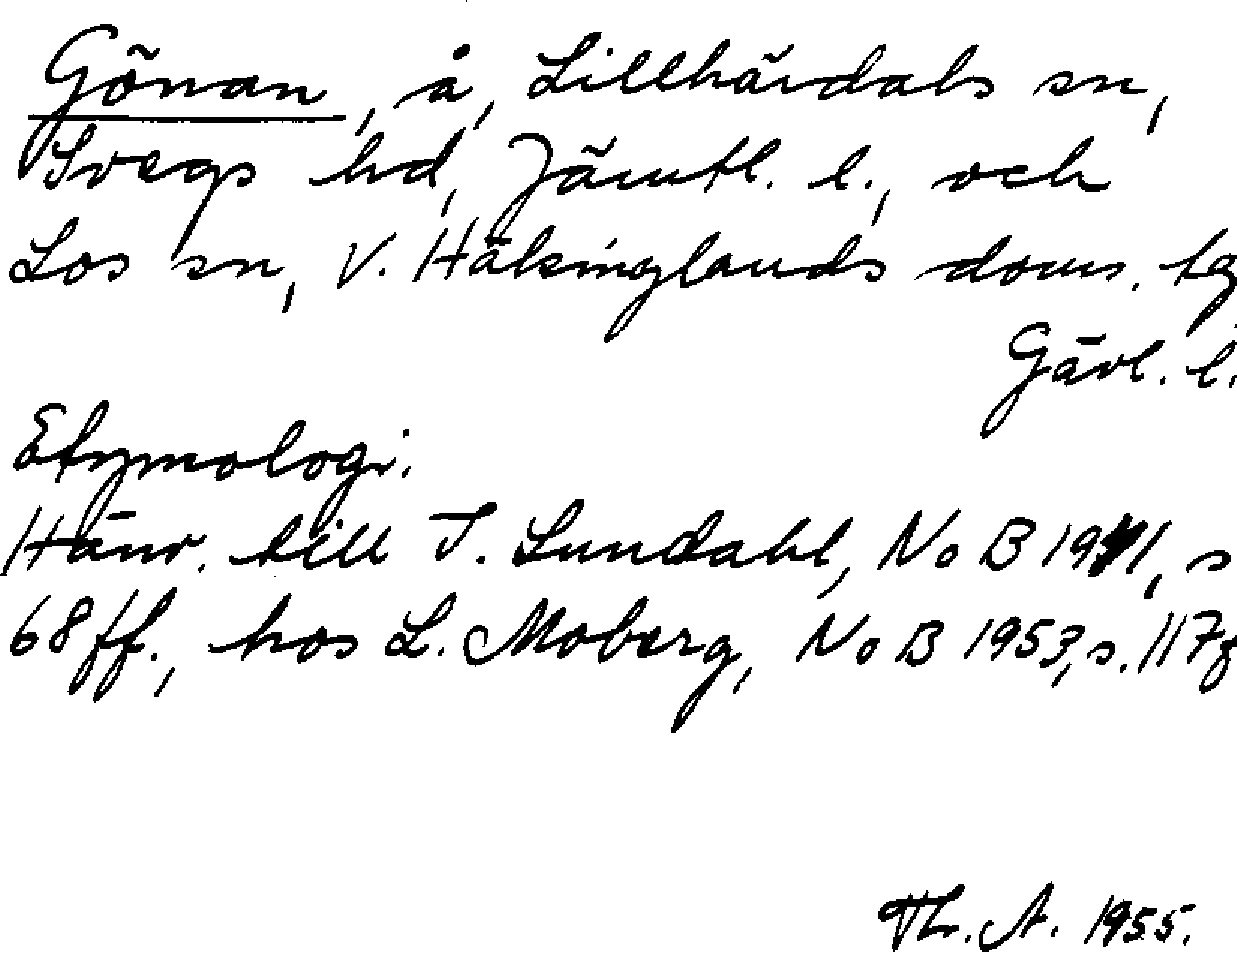 Gönan, å, Lillhärdals sn,
Svegs hd, Jämtl. l., och
Los sn, V. Hälsinglands doms. tg
Gävl. l.
Etymologi.
Hänv. till I. Lundahl, NoB 1941, s
68 ff., hos L. Moberg, NoB 1953, s. 117f
Th. A. 1955.